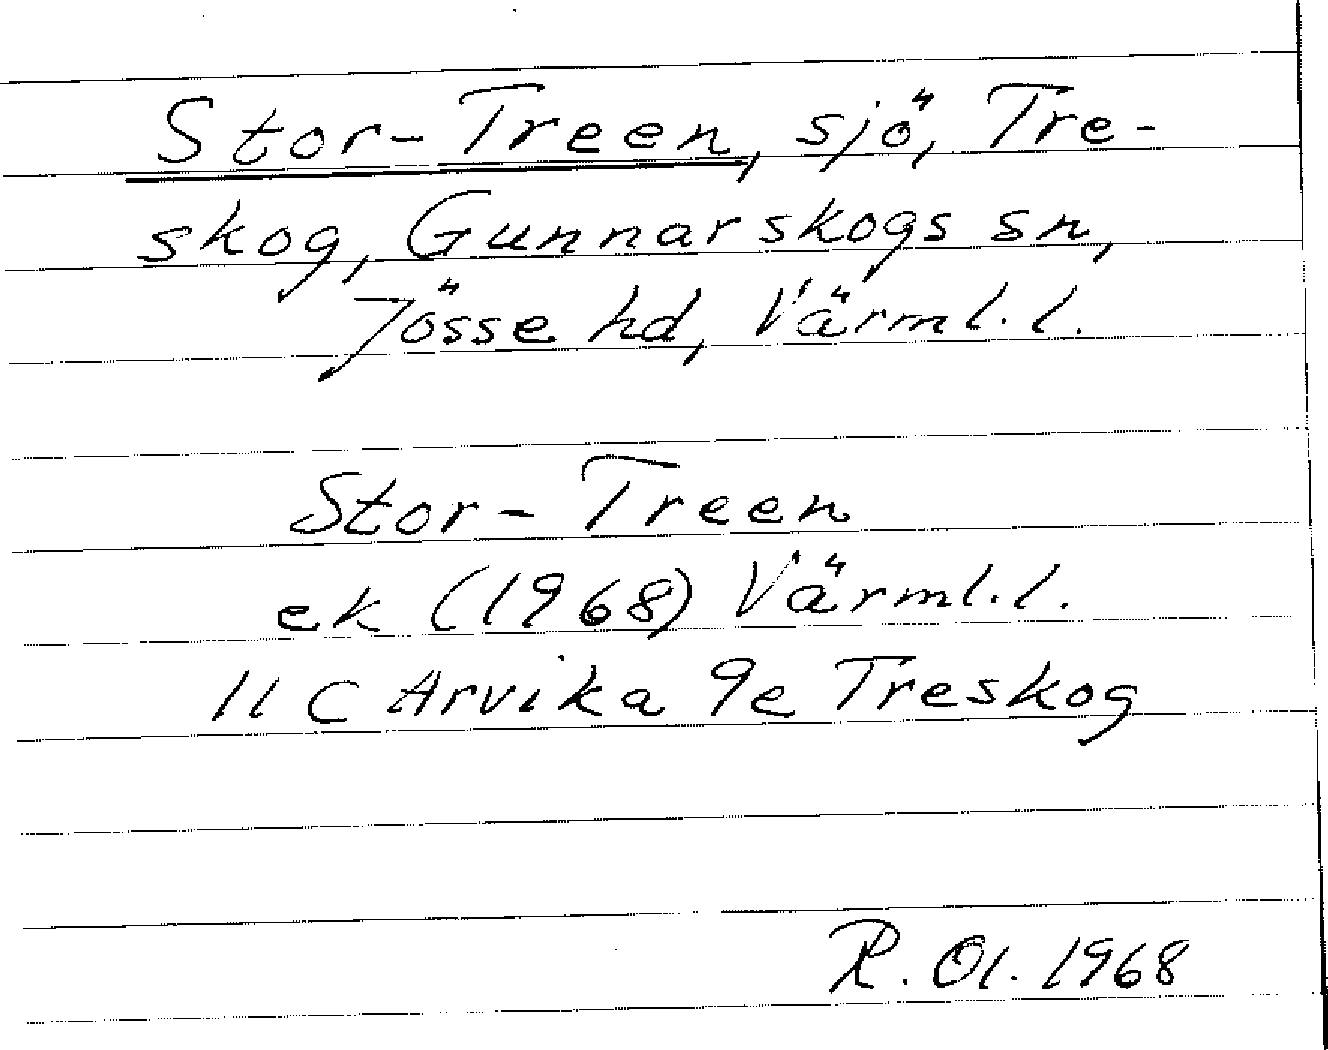 Stor-Treen, sjö, Tre-
skog, Gunnarskogs sn,
Jösse hd, Värml. l.
Stor-Treen
ek (1968) Värml. l.
11 C Arvika 9e Treskog
R. Ol. 1968